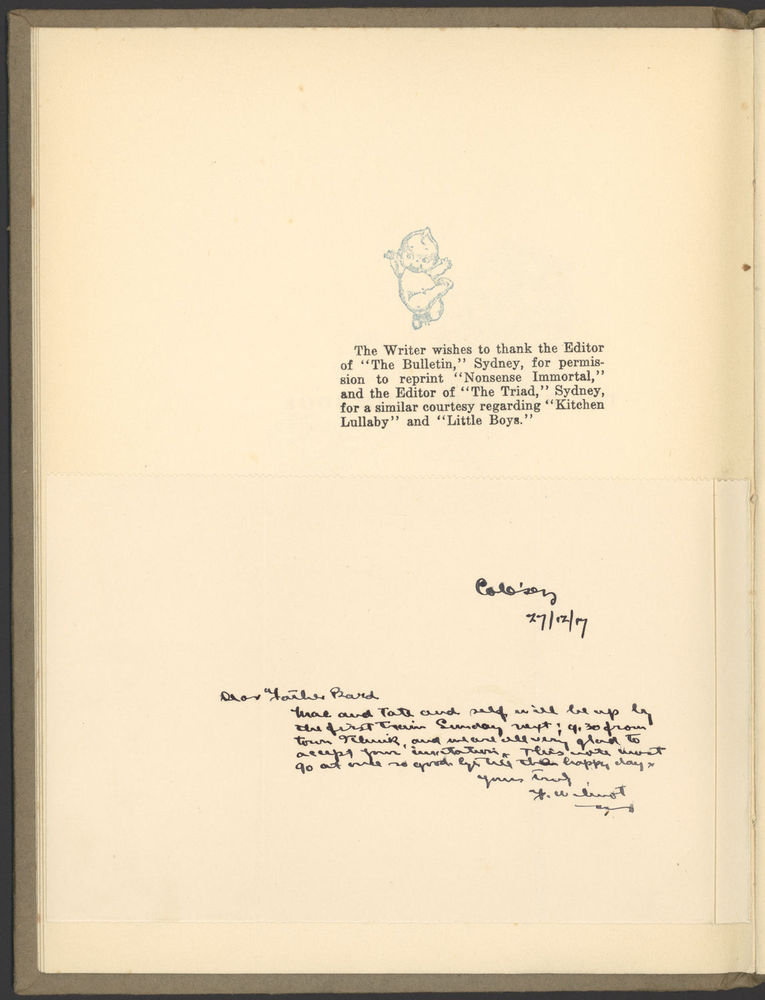 The Writer wishes to thank the Editor
of "The Bulletin," Sydney, for permis-
sion to reprint "Nonsense Immortal,"
and the Editor of "The Triad," Sydney,
for a similar courtesy regarding "Kitchen
Lullaby" and "Little Boys."
27/12/17
Dear Father Bard
Mac and Tate and self will be up by
the first train Sunday next; 9.30 from
town I think, and we are all very glad to
accept your invitation. This note must
go at once so good bye till then happy day
yours truly